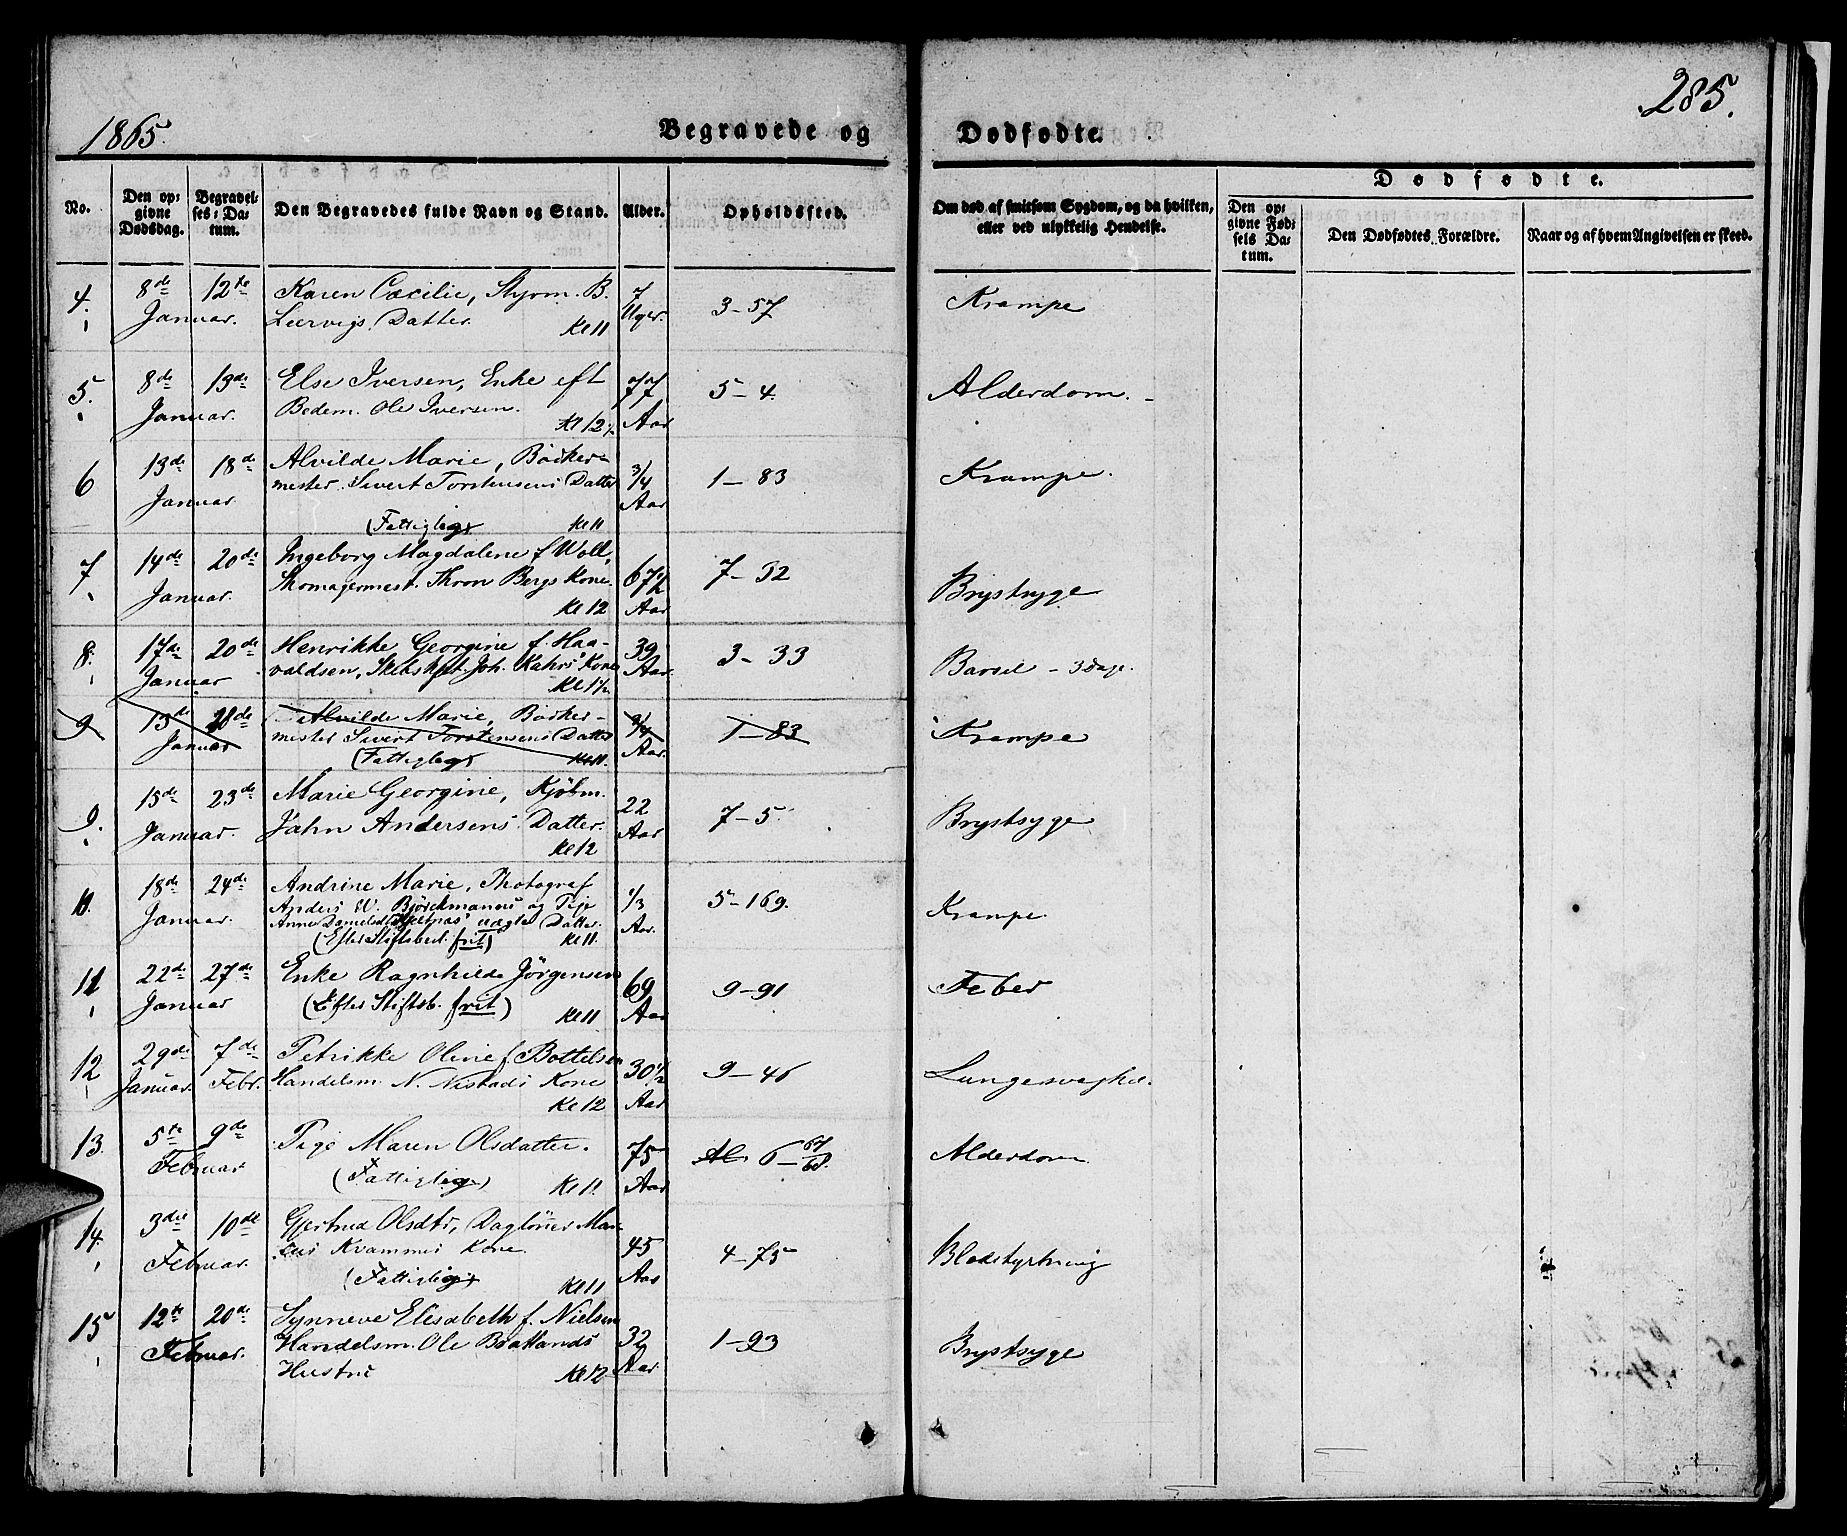 1865.
Begravede og Dødfødte.
285.
No.
Den opgivne Dødsdag.
Begravelses-Datum.
Den Begravedes fulde Navn og Stand.
Alder.
Opholdssted.
Om død af smitsom Sygdom, og da hvilken, eller ved ulykkelig Hendelse.
Dødfødte.
Den opgivne Fødsels Datum.
Den Dødfødtes Forældre.
Naar og af hvem Angivelsen er skeed.
4. 8de 12te Karen Cæcilie, Styrm. B. 7 3-57 Krampe
Januar. Leervigs Datter. Kl 11 Uger.
5. 8de 13de Else Iversen, Enke eft 77 5-4. Alderdom.
Januar. Bedem. Ole Iversen. Kl 12½ Aar
6 13de 18de Alvilde Marie, Bødker- 3/4 1-83 Krampe.
Januar mester Sivert Torstensens Datter Aar
(Fattiglig) Kl 11
7 14de 20de Ingeborg Magdalene f. Woll, 67½ 7-32 Brystsyge
Januar. Skomagermest. Thron Bergs Kone.
Kl 12 Aar
8. 17de 20de Henrikke Georgine f. Haa- 39 3-33 Barsel - 3 Dage.
Januar valdsen, Skibskpt. Joh. Kahrs' Kone Aar.
Kl 1½
9 13de 28de Alvilde Marie, Bødker- 3/4 1-83 Krampe
Januar mester Sivert Torstensens Datter Aar.
(Fattiglig) Kl 11.
9. 15de 23de Marie Georgine, Kjøbm. 22 7-5. Brystsyge
Januar. Jahn Andersens Datter. Aar
Kl 12
10. 18de 24de Andrine Marie, Photograf 1/3 5-169. Krampe
Januar. Anders W. Björckmanns og Pige
Anne uægte Datter. Aar.
(Efter Stiftsbevl. frit) Kl 11.
11 22de 27de Enke Ragnhilde Jörgensen 69 9-91 Feber
Januar (Efter Stiftsb. frit) Kl 11 Aar
12 29de 7de Petrikke Oline f. Bottelsen 30½ 9-46 Lungesvaghed.
Januar. Febr. Handelsm. N. Nistads Kone
Kl 12 Aar
13. 5te 9de Pige Maren Olsdatter. 75 Al. 6-67/68. Alderdom
Februar. (Fattiglig) Kl 11. Aar
14. 3die 10de Gjertrud Olsdtr, Dagløner Mar- 45 4-75 Blodstyrtning
Februar. cus Kvammes Kone.
(Fattiglig) Kl 11 Aar
15 12te 20de Synneve Elisabeth f. Nielsen 32 1-93 Brystsyge
Februar. Handelsm. Ole Boatlands Aar
Hustru Kl 12